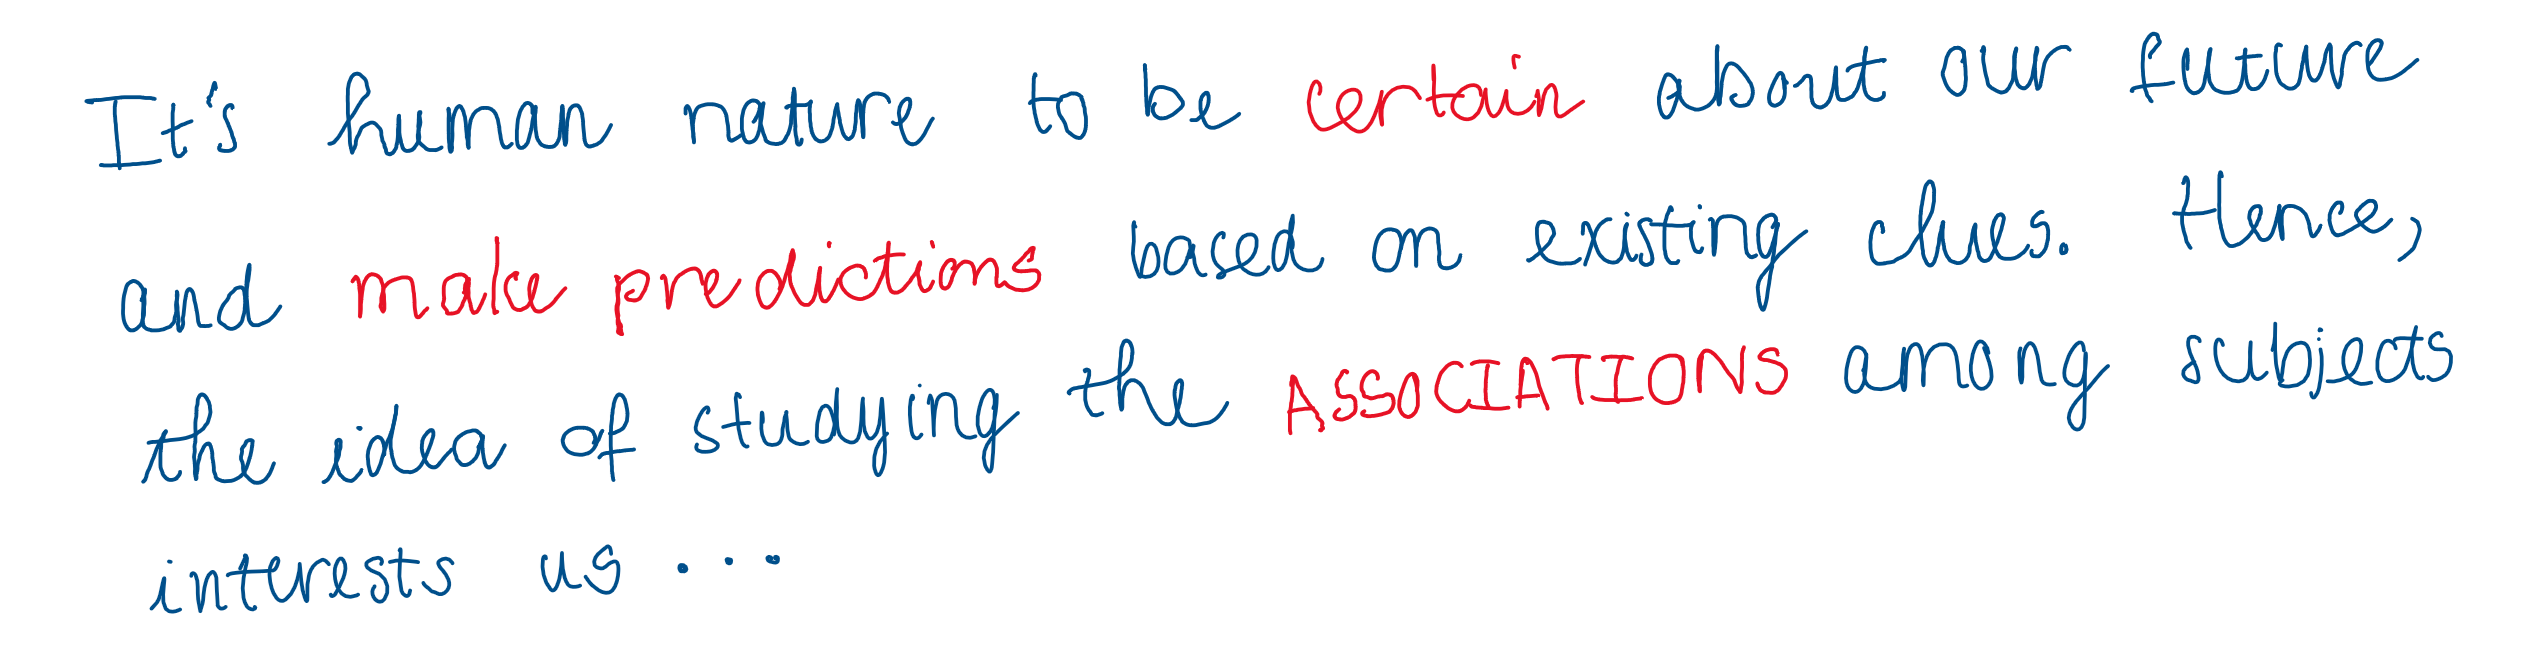 It's human nature to be certain about our future
and make predictions based on existing clues. Hence,
the idea of studying the ASSOCIATIONS among subjects
interests us ...